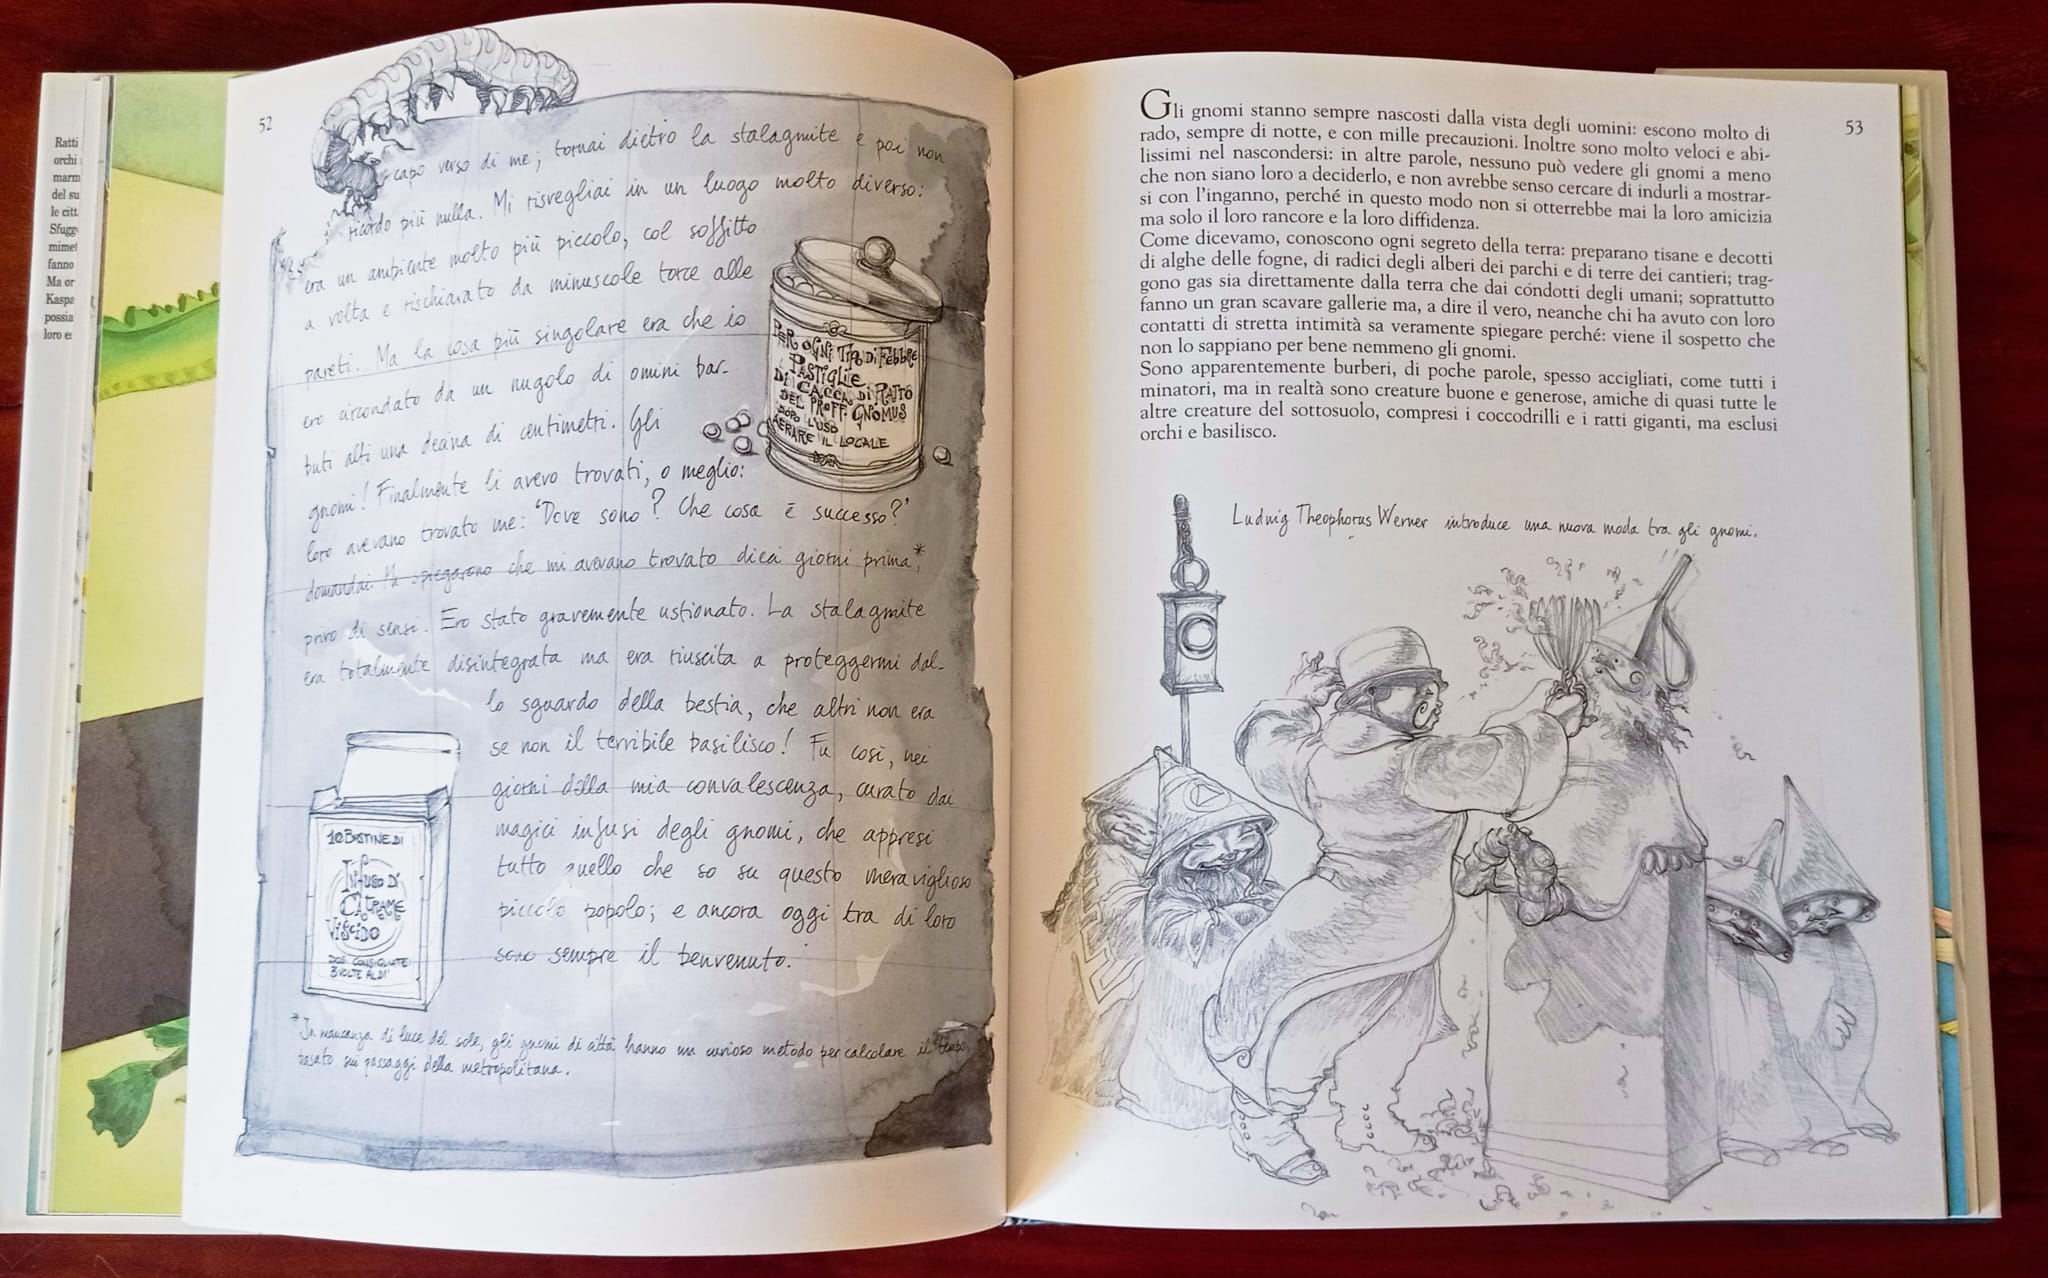 Ratti
orchi
marm
del su
le citt
Sfugg
mimet
fanno
Ma or
Kaspa
possia
loro es
52
capo verso di me; tornai dietro la stalagmite e poi non
ricordo più nulla. Mi risvegliai in un luogo molto diverso:
era un ambiente molto più piccolo, col soffitto
a volta e rischiarato da minuscole torce alle
pareti. Ma la cosa più singolare era che io
ero circondato da un nugolo di omini bar-
buti alti una decina di centimetri. Gli
gnomi! Finalmente li avevo trovati, o meglio:
loro avevano trovato me: 'Dove sono? Che cosa è successo?'
domandai. Mi spiegarono che mi avevano trovato dieci giorni prima*,
privo di sensi. Ero stato gravemente ustionato. La stalagmite
era totalmente disintegrata ma era riuscita a proteggermi dal-
lo sguardo della bestia, che altri non era
se non il terribile basilisco! Fu così, nei
giorni della mia convalescenza, curato dai
magici infusi degli gnomi, che appresi
tutto quello che so su questo meraviglioso
piccolo popolo; e ancora oggi tra di loro
sono sempre il benvenuto.
PER OGNI TIPO DI FEBBRE
PASTIGLIE
DI CACCA DI RATTO
DEL PROFF. GNOMUS
DOPO L'USO
AERARE IL LOCALE
10 BUSTINE DI
INFUSO DI
CATRAME
VISCIDO
DOSI CONSIGLIATE
3 VOLTE AL DI'
*In mancanza di luce del sole, gli gnomi di città hanno un curioso metodo per calcolare il tempo,
basato sui passaggi della metropolitana.
53
Gli gnomi stanno sempre nascosti dalla vista degli uomini: escono molto di
rado, sempre di notte, e con mille precauzioni. Inoltre sono molto veloci e abi-
lissimi nel nascondersi: in altre parole, nessuno può vedere gli gnomi a meno
che non siano loro a deciderlo, e non avrebbe senso cercare di indurli a mostrar-
si con l'inganno, perché in questo modo non si otterrebbe mai la loro amicizia
ma solo il loro rancore e la loro diffidenza.
Come dicevamo, conoscono ogni segreto della terra: preparano tisane e decotti
di alghe delle fogne, di radici degli alberi dei parchi e di terre dei cantieri; trag-
gono gas sia direttamente dalla terra che dai cóndotti degli umani; soprattutto
fanno un gran scavare gallerie ma, a dire il vero, neanche chi ha avuto con loro
contatti di stretta intimità sa veramente spiegare perché: viene il sospetto che
non lo sappiano per bene nemmeno gli gnomi.
Sono apparentemente burberi, di poche parole, spesso accigliati, come tutti i
minatori, ma in realtà sono creature buone e generose, amiche di quasi tutte le
altre creature del sottosuolo, compresi i coccodrilli e i ratti giganti, ma esclusi
orchi e basilisco.
Ludwig Theophorus Werner introduce una nuova moda tra gli gnomi.